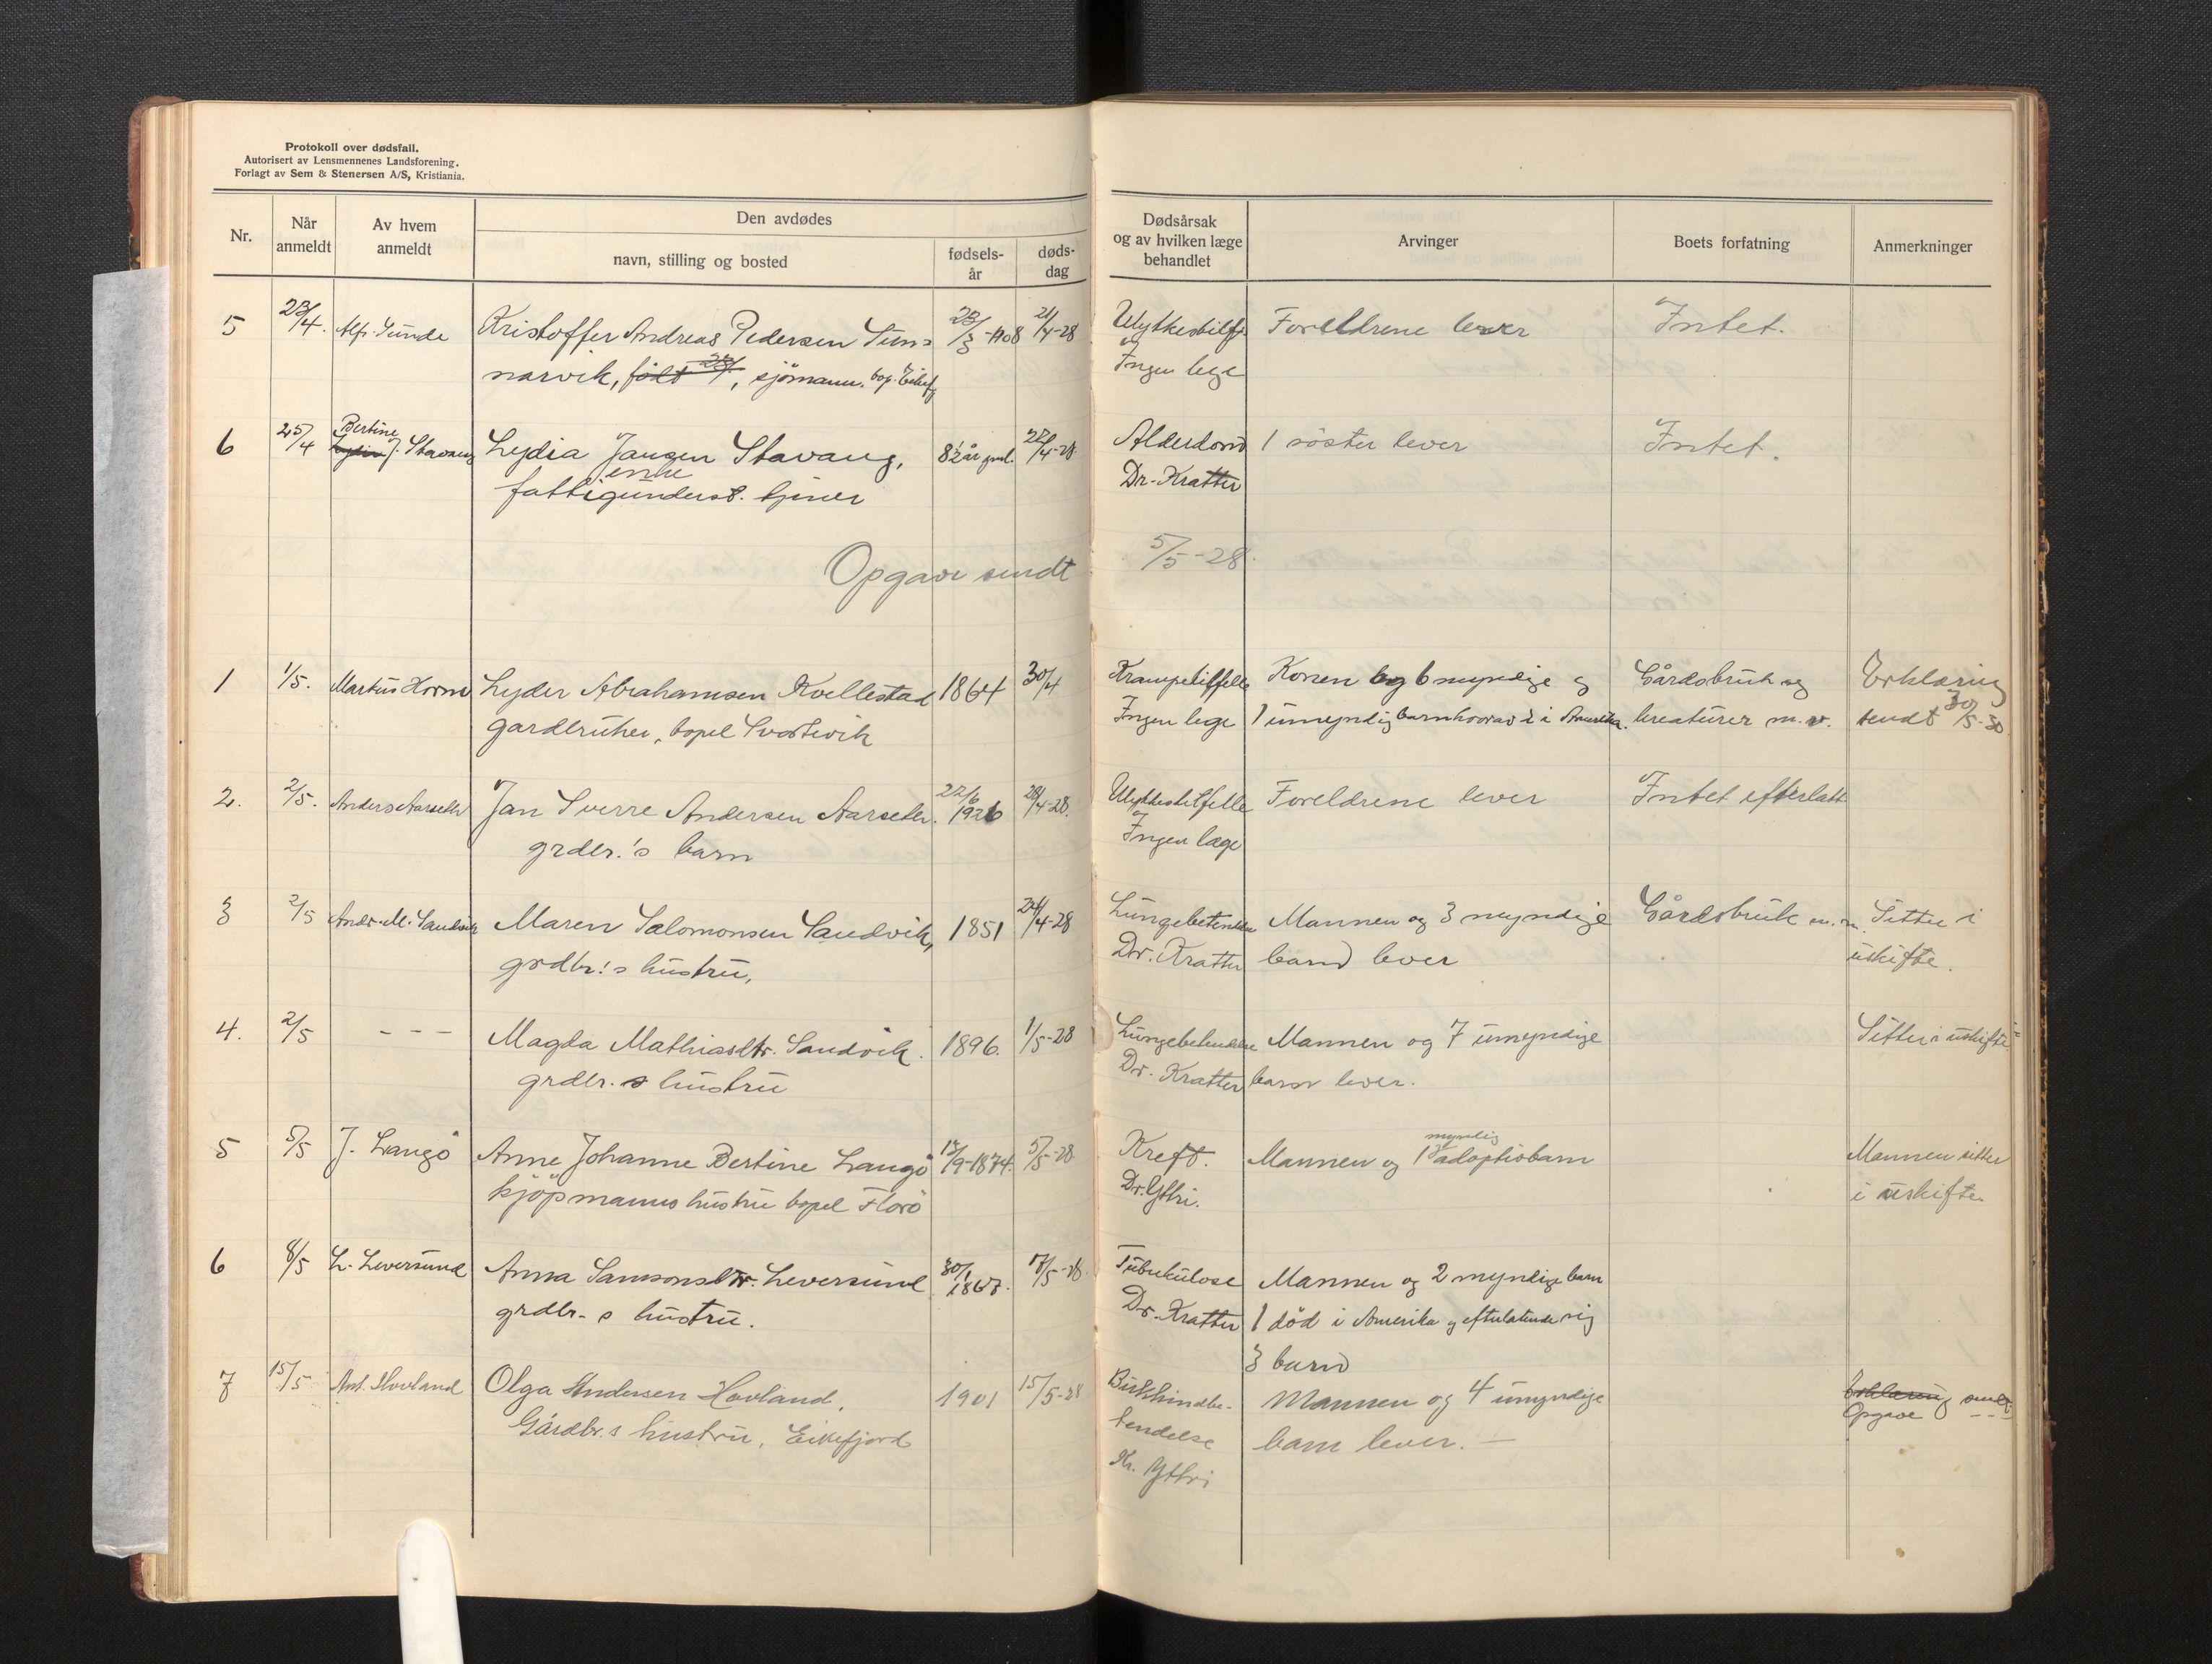 Protokoll over dødsfall.
Autorisert av Lensmennenes Landsforening.
Forlagt av Sem & Stenersen A/S, Kristiania.
Nr.
Når anmeldt
Av hvem anmeldt
Den avdødes
navn, stilling og bosted
fødsels-
år
døds-
dag
Dødsårsak
og av hvilken læge
behandlet
Arvinger
Boets forfatning
Anmerkninger
5 23/4. Alfr. Sunde Kristoffer Andreas Pedersen Sun= 23/3-1908 21/4-28 Foreldrene lever Intet.
narvik, født, sjömann. bop. Ingen lege
Bertine
6 25/4 Lydia J. Stavang Lydia Jansen Stavang, 82 år gml. 22/4-28 Alderdom 1 söster lever Intet.
enke
fattigunderst. Dr. Kratter
Opgave sendt 5/5-28.
1 1/5. Martus Horne Lyder Abrahamsen Kvellestad 1864 30/4 Krampetilfelle Konen og 6 myndige og Gårdsbruk og Erklæring
gardbruker, bopel Svortevik Ingen lege 1 umyndig barn hvorav 2 i Amerika. kreaturer m.v. sendt 30/5-30
2. 2/5. Anders Aarseter Jan Sverre Andersen Aarseter. 22/6 1926 28/4-28. Ulykkestilfelle Foreldrene lever Intet efterlatt
grdbr.'s barn Ingen læge
3 2/5 Andr. M. Sandvik Maren Salomonsen Sandvik, 1851 24/4-28 Lungebetendelse Mannen og 3 myndige Gårdsbruk m.m. Sitter i
grdbr.'s hustru, Dr. Kratter barn lever uskifte.
4. 2/5 - - - Magda Mathiasdtr. Sandvik. 1896. 1/5-28 Lungebetendelse Mannen og 7 umyndige Sitter i uskifte
grdbr.s hustru Dr. Kratter barn lever.
myndig
5 5/5 J. Langö Anne Johanne Bertine Langö 13/9-1874. 5/5-28 Kreft. Mannen og 1 adoptivbarn Mannen sitter
kjöpmanns hustru bopel Florö Dr. Ythri. i uskifte
6 8/5 L. Leversund Anna Samsonsdtr. Leversund 30/1 1867. 7/5-28. Tuberkulose Mannen og 2 myndige barn
grdbr.s hustru. Dr. Kratter 1 död i Amerika og efterlatende sig
3 barn
7 15/5 Ant. Hovland Olga Andersen Hovland, 1901 15/5-28 Bukhindbe- Mannen og 4 umyndige Erklæring sendt
Gårdbr.s hustru, Eikefjord tendelse barn lever. — Opgave - -
Kr. Ythri